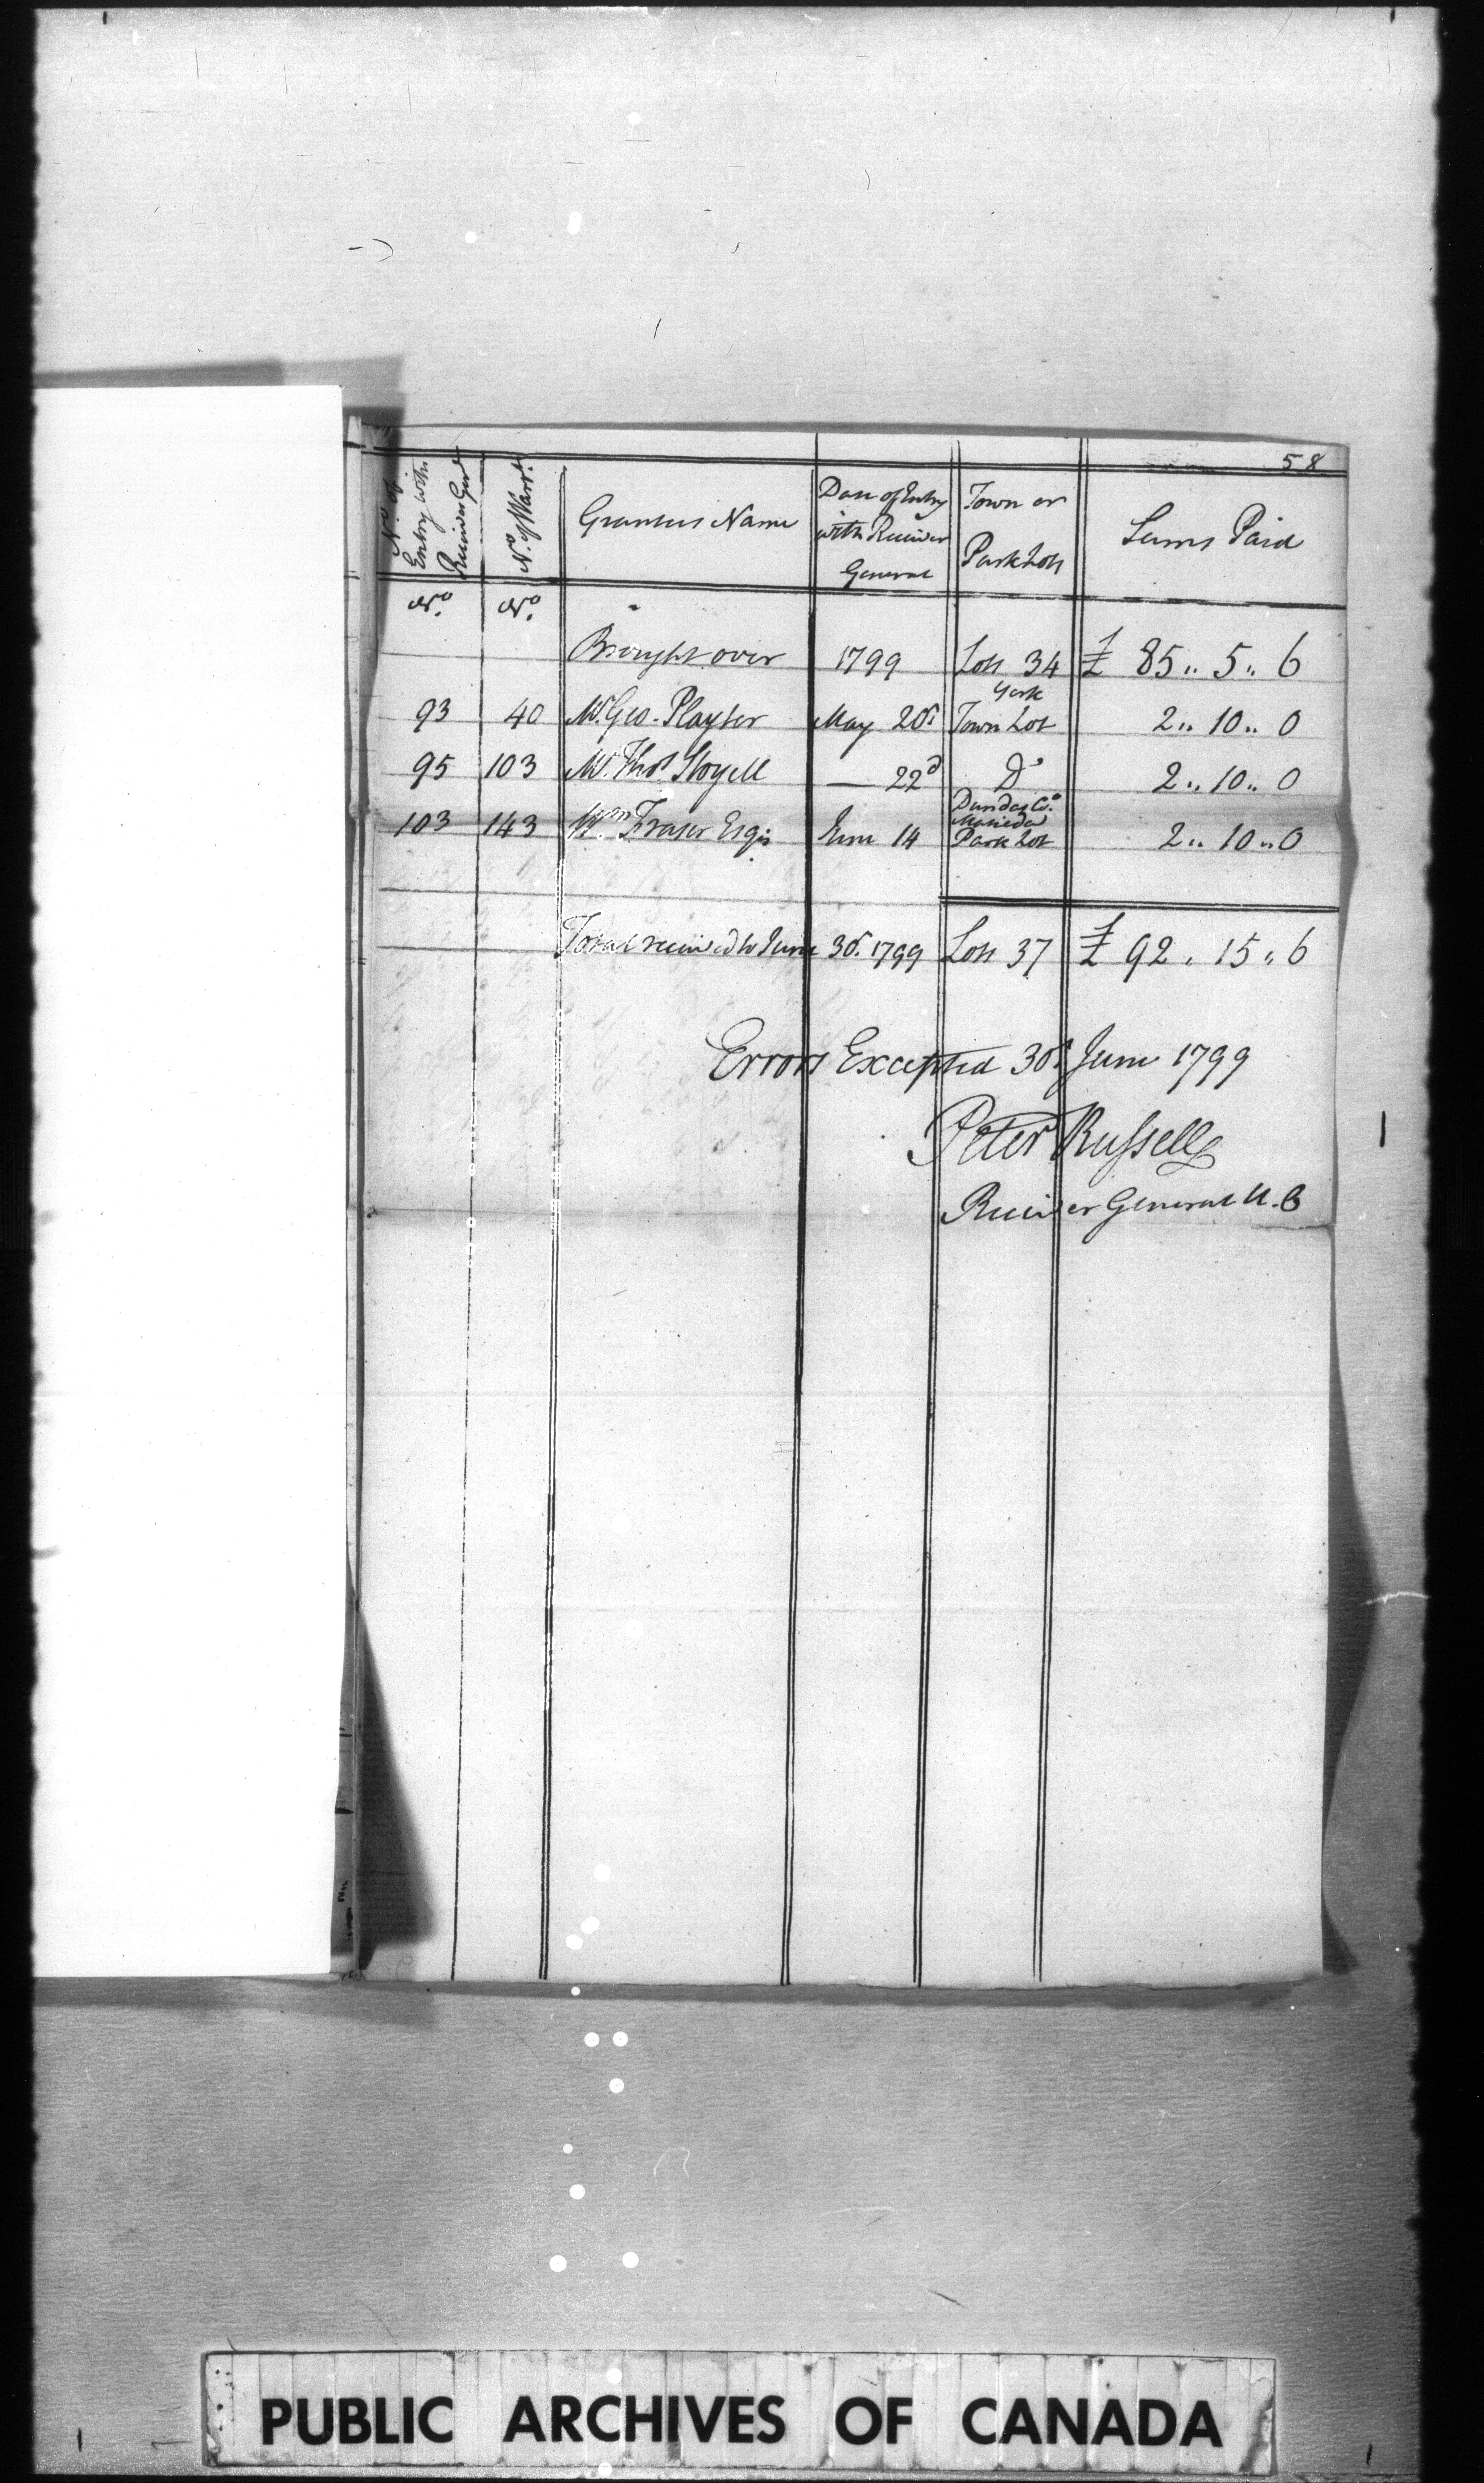 58
No. of Entry with Receiver Genl | No. of Warrt. | Grantees Name | Date of Entry with Receiver General | Town or Park Lots | Sums Paid
No. | No.
Brought over | 1799 | Lots 34 | £ 85 " 5 " 6
93 | 40 | Mr. Geo. Playter | May 20th | York Town Lot | 2 " 10 " 0
95 | 103 | Mr. Thos. Stoyell | — 22d | Do | 2 " 10 " 0
103 | 143 | Wm. Fraser Esqr. | June 14 | Dundas Co. Park Lot | 2 " 10 " 0
Total received to June 30th. 1799 | Lots 37 | £ 92 " 15 " 6
Errors Excepted 30th June 1799
Peter Russell
Receiver General U. C
PUBLIC ARCHIVES OF CANADA